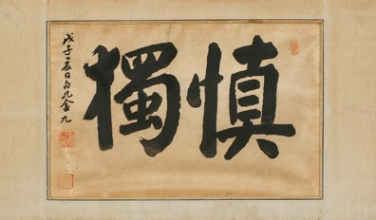 慎獨
戊子 日白凡金九